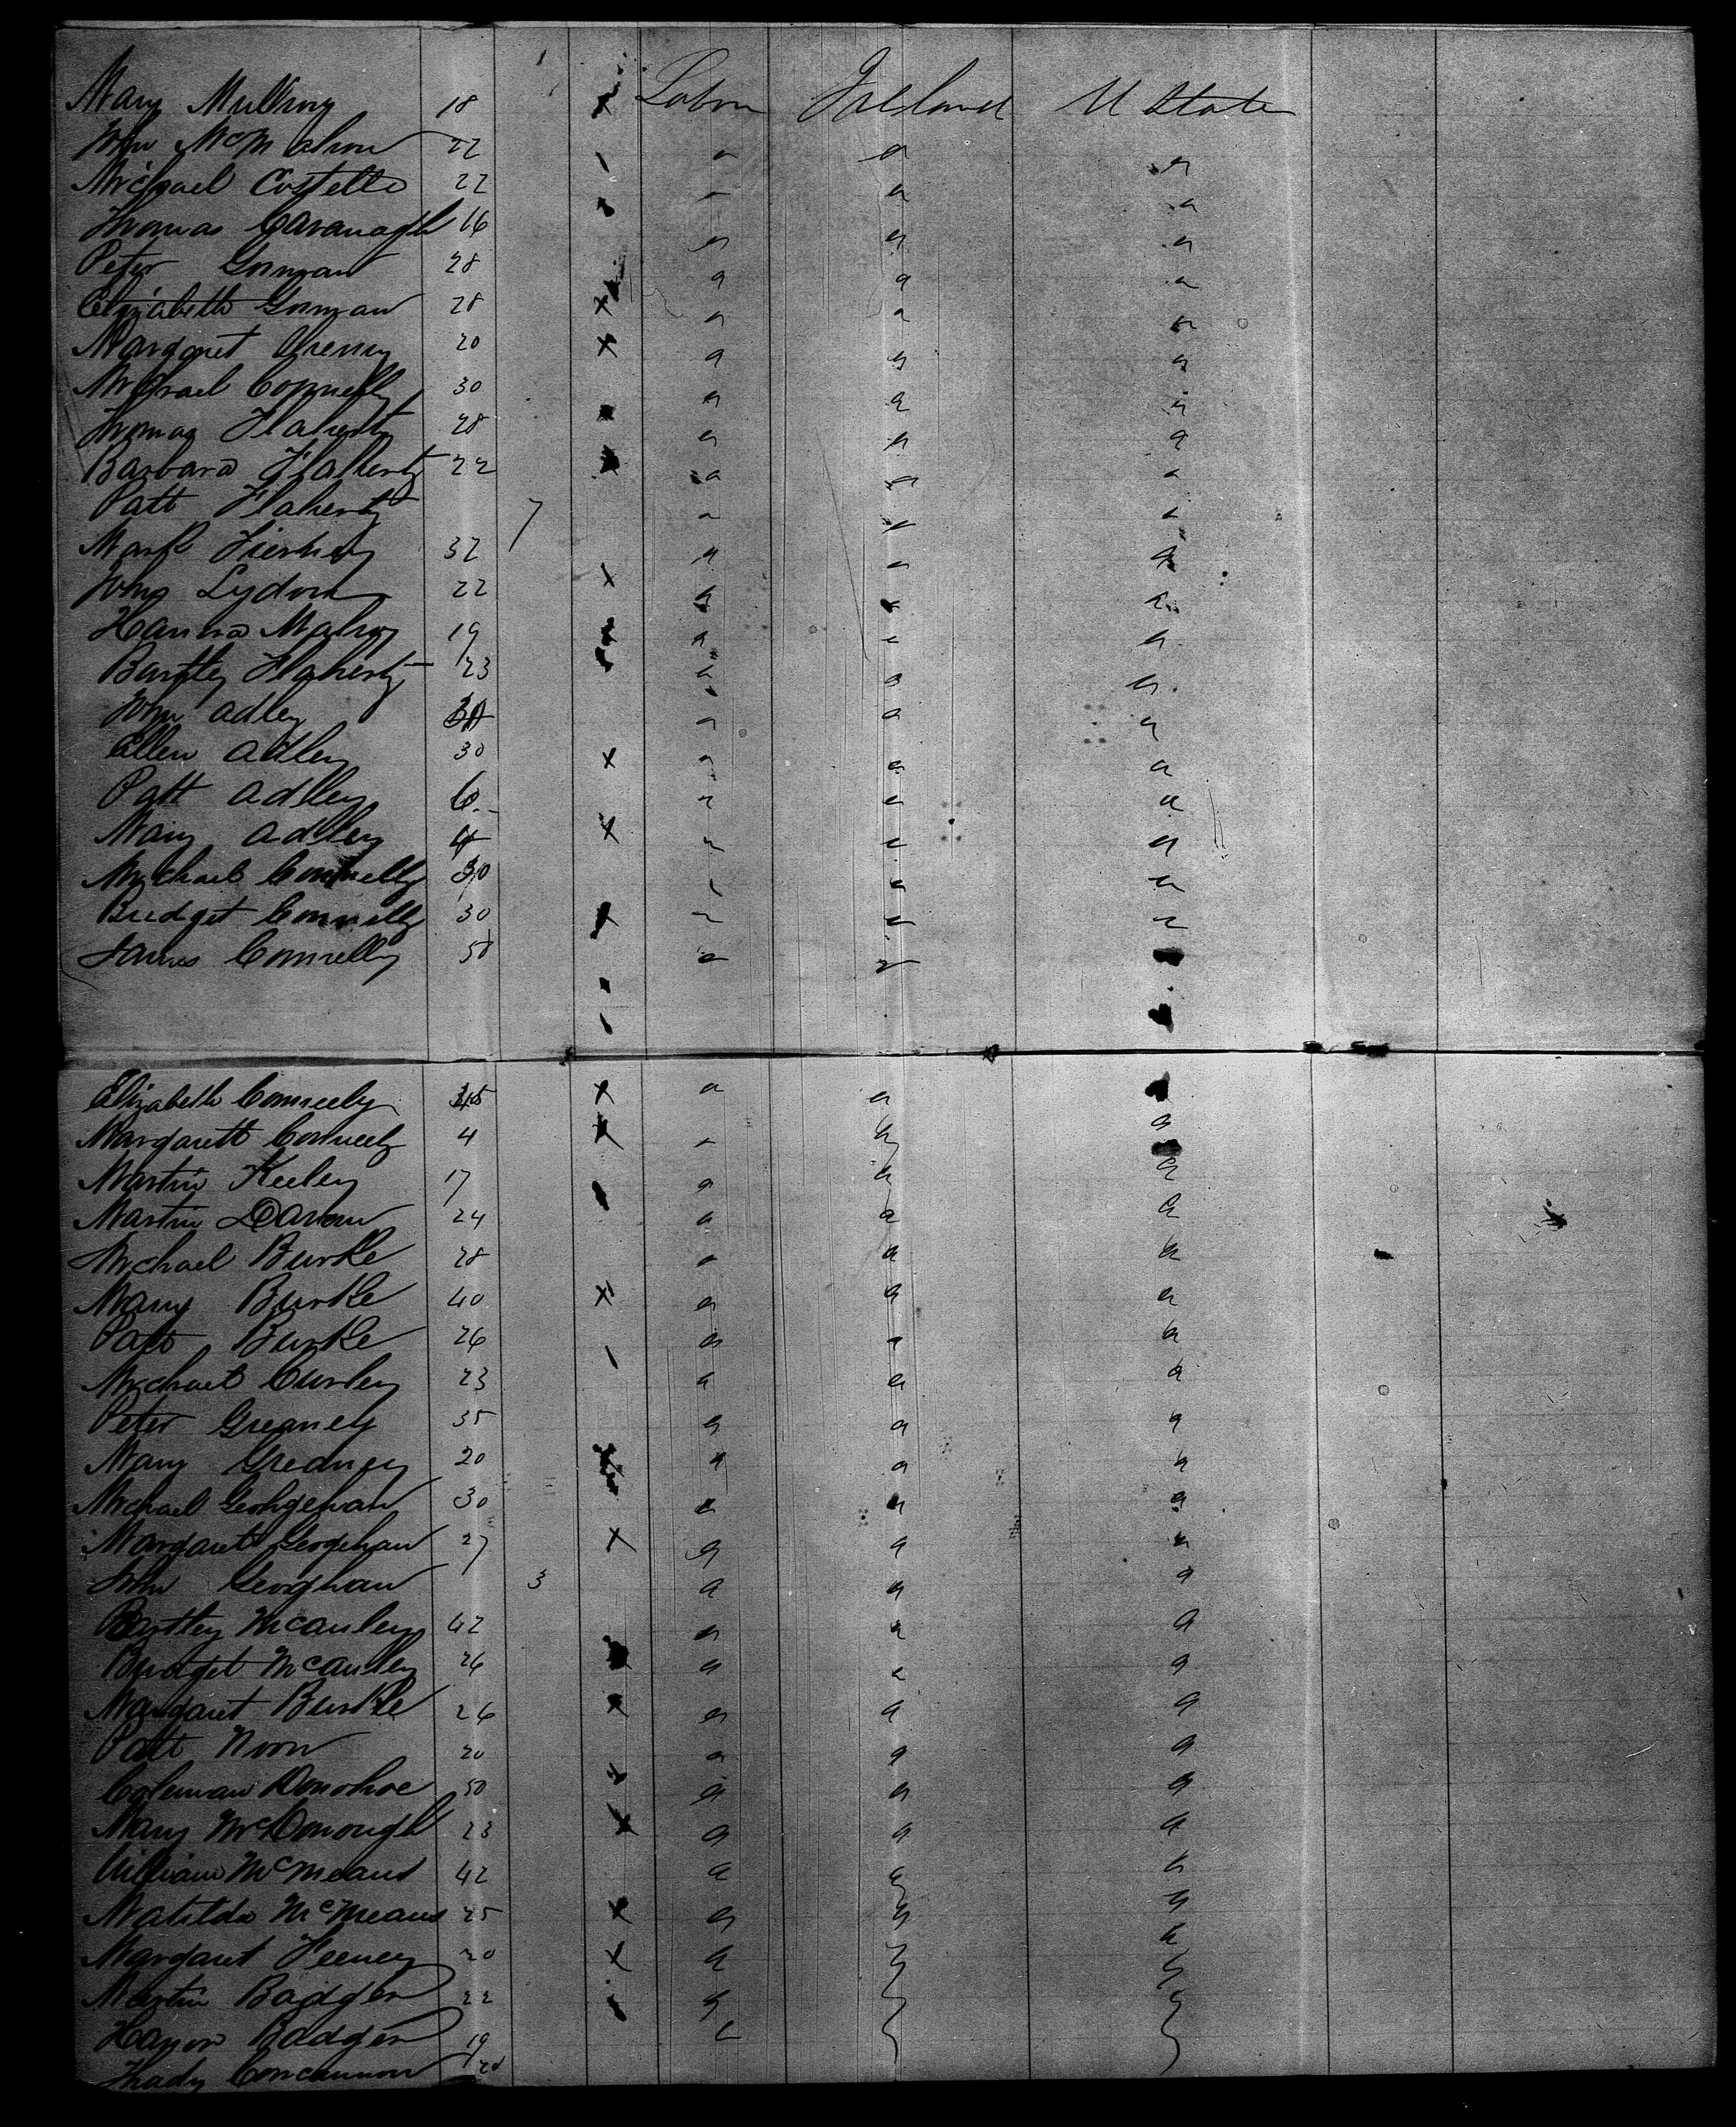 Mary Mulkroy 18 x Labor Ireland U State
John McMahon 22 / " " "
Michael Costello 22 " " "
Thomas Cavanagh 16 " " "
Peter Gorman 28 " " "
Elizabeth Gorman 28 x " " "
Margaret 20 x " " "
Michael Connelly 30 " " "
Thomas Flaherty 28 " " "
Barbara Flaherty 22 x " " "
Patt Flaherty 7 " " "
Mark Tierney 32 " " "
Lydon 22 x " " "
Hanna Malroy 19 x " " "
Bartley Flaherty 23 " " "
John Adley " " "
Ellen Adley 30 x " " "
Patt Adley 6 " " "
Mary Adley 4 x " " "
Michael Connelly 30 " " "
Bridget Connelly 30 x " " "
James Connelly 50 " "
Elizabeth Conneely x " "
Margarett Conneely 4 x " " "
Martin Keeley 17 " " "
Martin 24 " " "
Michael Burke 28 " " "
Mary Burke 40 x " " "
Patt Burke 26 " " "
Michael Curley 23 / " " "
Peter Greaney 35 " " "
Mary Greaney 20 x " " "
Michael Geohgehan 30 " " "
Margaret Geogehan 27 x " " "
John Geoghan 3 " " "
Bartley McCauley 42 " " "
Bridget McCauley 26 " " "
Margaret Burke 26 x " " "
Patt Noon 20 " " "
Coleman Donohoe 50 " " "
Mary McDonough 23 x " " "
William McMeans 42 " " "
Matilda McMeans 25 x " " "
Margaret Feeney 20 x " " "
Martin Badger 22 " " "
Badger 19 " " "
Thady Concannon 20